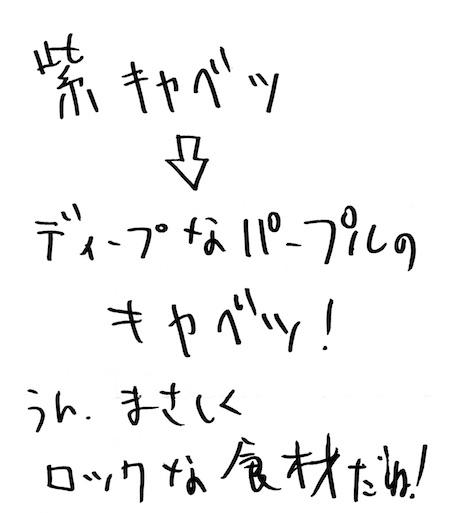 紫キャベツ
⇩
ディープなパープルの
キャベツ!
うん、まさしく
ロックな食材だね!